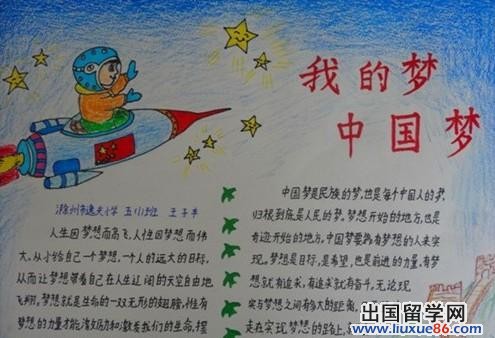 我的梦
中国梦
滁州市逸夫小学 五(1)班 王子丰
人生因梦想而高飞,人性因梦想而伟
大。从小给自己一个梦想,一个人的远大的目标,
从而让梦想带着自己在人生辽阔的天空自由地
飞翔,梦想就是生命的一双无形的翅膀,惟有
梦想的力量才能激励力和激发我们的生命。摆
中国梦是民族的梦,也是每个中国人的梦,
归根到底是人民的梦。梦想开始的地方,也是
奇迹开始的地方,中国梦要靠有梦想的人来实
现。梦想是目标,是希望,也是前进的力量。有梦
想就有追求,有追求就有奋斗。无论现
实与梦想之间有多大的距离,
走在实现梦想的路上,
出国留学网
www.liuxue86.com